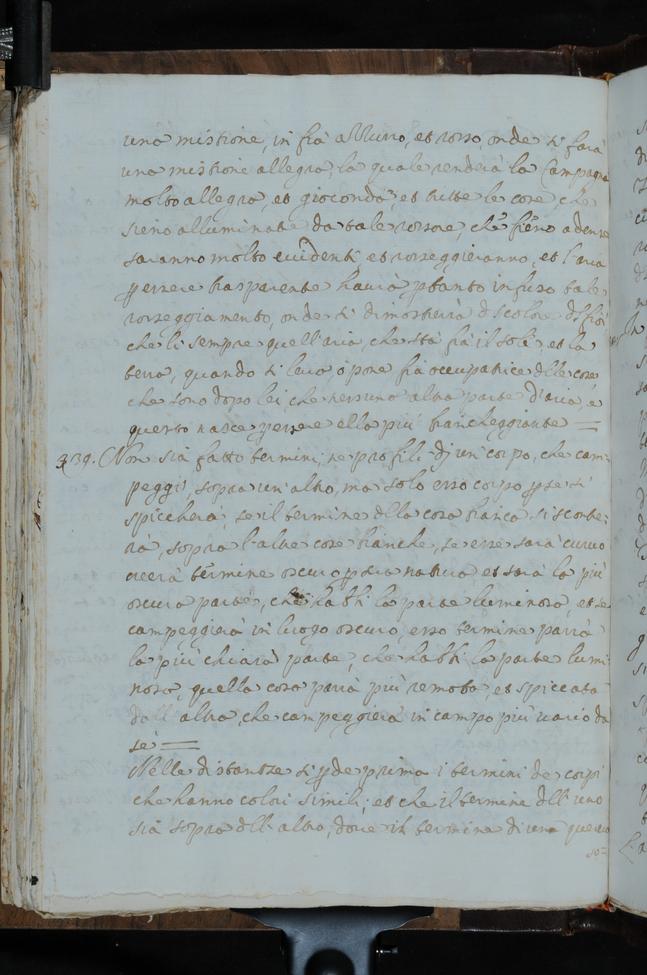 una mistione, in fra azzurro, et rosso, onde si farà
una mistione allegra, la quale renderà la Campagna
molto allegra, et gioconda, et tutte le cose, che
sieno alluminate da tale rossore, che fieno adense
saranno molto euidenti et rosseggieranno, et l'aria
p essere trasparente haurà p tanto infuso tale
rosseggiamento, onde si dimosterrà d colore d fior
che li sempre quell'aria, che stà fra il sole, et la
terra, quando si leua, ò pone fia occupatrice dlle cose
che sono dopo lei, che nessuna altra parte d'aria, e
questo nasce p essere ella più biancheggiante =
439. Non sia fatto termini, ne profili dj un corpo, che cam
peggi, sopra un'altro, ma solo esso corpo p se si
spiccherà se il termine dlla cosa bianca si scontre:
rà, sopra l'altre cose bianche, se esse sarà curuo
creerà termine oscuro p sua natura et sarà la più
oscura parte, che habbi la parte luminosa, et se
campeggierà in luogo oscuro, esso termine parrà
la più chiara parte, che habbi la parte lumi
nosa, quella cosa parrà più remota, et spiccata
dall'altra, che campeggierà in campo più uario da
sè =
Nelle distantze si pde prima i termini de corpi
che hanno colori simili, et che il termine dll'uno
sia sopra dll'altro, doue il termine di una quercia
so=